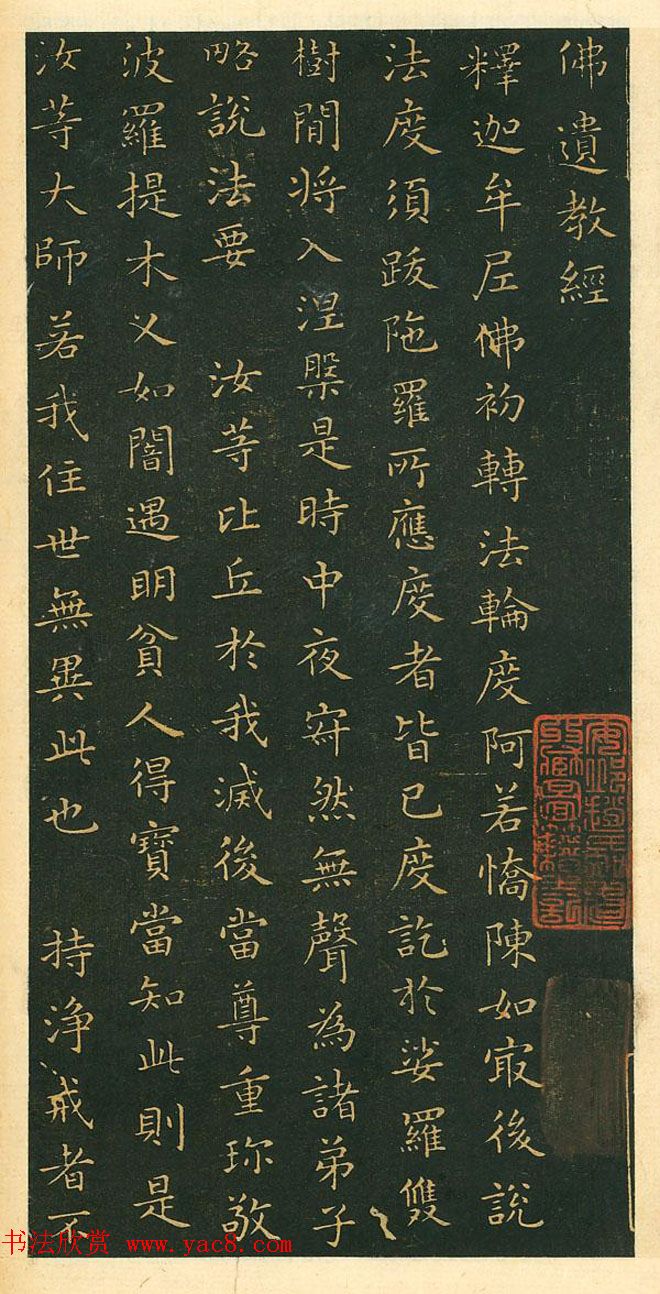 佛遺教經
釋迦牟尼佛初轉法輪度阿若憍陳如㝡後說
法度須跋陁羅所應度者皆已度訖於娑羅雙
樹間將入涅槃是時中夜寂然無聲為諸弟子
略說法要 汝等比丘於我滅後當尊重珎敬
波羅提木叉如闇遇明貧人得寶當知此則是
汝等大師若我住世無異此也 持淨戒者不
书法欣赏 www.yac8.com